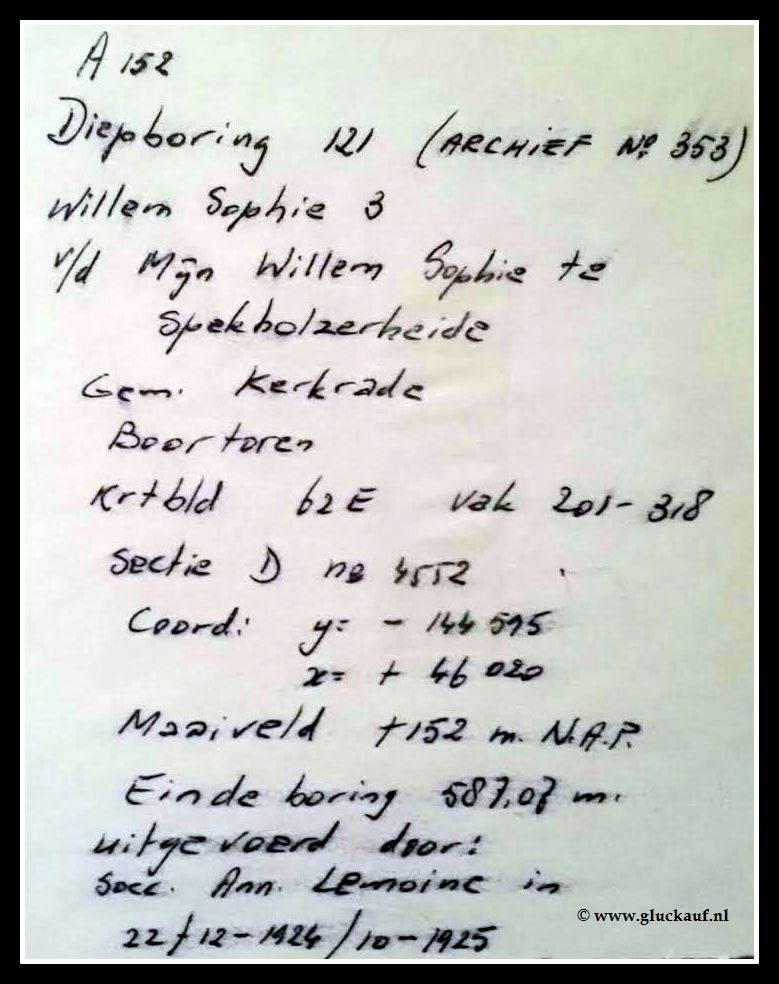 A 152
Diepboring 121 (ARCHIEF No 353)
Willem Sophie 3
v/d Mijn Willem Sophie te
Spekholzerheide
Gem. Kerkrade
Boortoren
Krtbld 62E vak 201-318
Sectie D no 4552
Coord: y= - 144 595
x= + 46 020
Maaiveld +152 m. N.A.P.
Einde boring 587,07 m.
uitgevoerd door:
Socc. Ann. Lemoine in
22/12-1924/10-1925
© www.gluckauf.nl